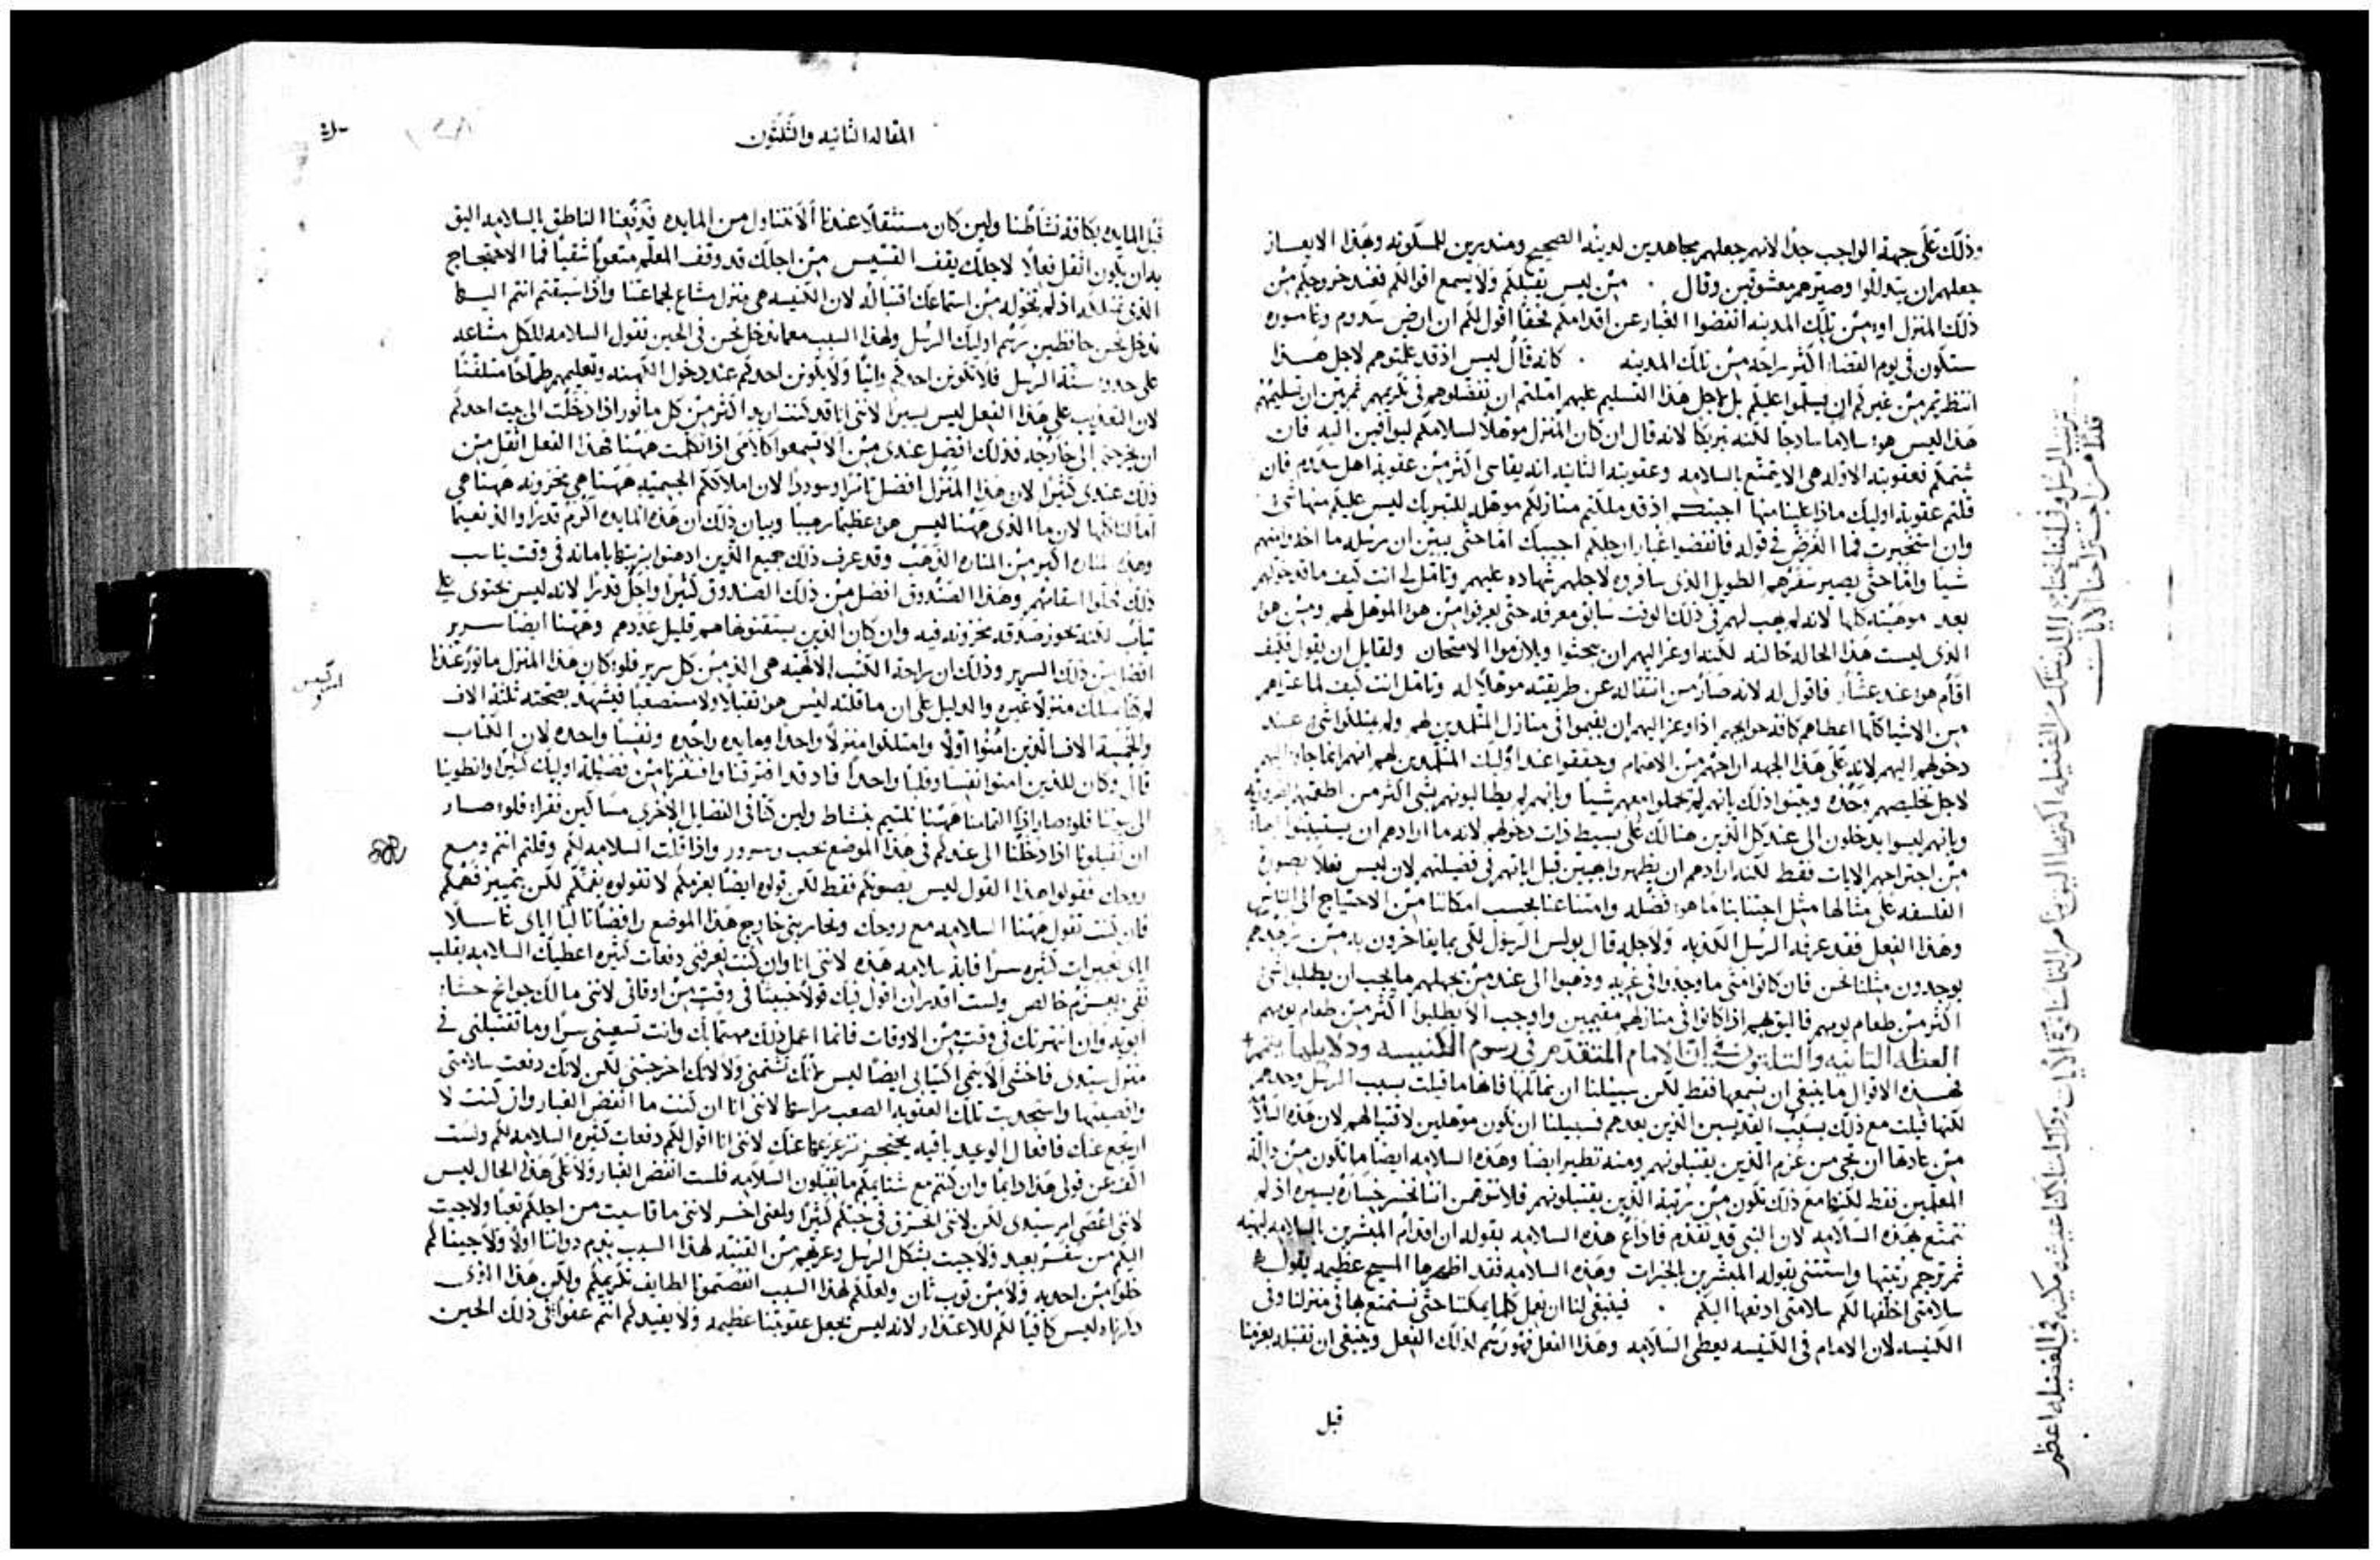 وذلك على جهة الواجب جدًا لانهم جعلهم مجاهدين لدينه الصحيح ومنذرين للمسكونه وبهذا الايعاز
جعلهم ان يتذللوا وصيرهم معشوقين وقال . مَن ليس يقبلكم ولا يسمع اقوالكم فعند خروجكم مِن
ذلك المنزل او مِن تلك المدينه انفضوا الغبار عن اقدامكم فحقًا اقول لكم ان ارض سدوم وغاموره
ستكون في يوم القضا اكثر راحه مِن تلك المدينه . كانه قال ليس اذ قد علمتوهم لاجل هذا
انتظرتم مِن غيركم ان يسلموا عليكم بل لاجل هذا التسليم عليهم امتلتم ان تفضلوهم في تكريمهم ثم بين ان تسليمهم
هذا ليس هو سلاما ساذجا لكنه تبريكا لانه قال ان كان المنزل موهلا لسلامكم ليوافين اليه فان
شتمكم فعقوبته الاوله هي الا يتمتع بالسلامه وعقوبته الثانيه انه يقاسي اكثر مِن عقوبة اهل سدوم فان
قلتم عقوبة اوليك ماذا علينا منها اجبتكم اذ قد ملكتم منازلكم موهله للتبريك ليس عليكم منها شي
وان استخبرت فما الغرض في قوله فانفضوا غبار ارجلكم اجيبك اما حتى يبين ان رسله ما اخذوا منهم
شيا واما حتى يصير سفرهم الطويل الذي سافروه لاجلهم شهاده عليهم وتامل لي انت كيف ما قد خولهم
بعد موهبته كلها لانه لم يهب لهم في ذلك الوقت سابق معرفه حتى يعرفوا من هو الموهل لهم ومن هو
الذي ليست هذا الحاله حالته لكنه اوعز اليهم ان يبحثوا ويلازموا الامتحان ولقايل ان يقول فكيف
اقام هو عند عشار فاقول له لانه صار من انتقاله عن طريقته موهلا له وتامل انت كيف لما عراهم
مِن الاشيا كلها اعطاهم كافة حوايجهم اذ اوعز اليهم ان يقيموا في منازل المتلمذين لهم ولم يمتلكوا شي عند
دخولهم اليهم لانه على هذا الجهه اراحهم مِن الاهتمام وحققوا عند اوليك المتلمذين لهم انهم انما جاوا اليهم
لاجل تخليصهم وحده وبينوا ذلك بانهم لم يحملوا معهم شيا وبانهم لم يطالبوهم بشي اكثر من اطعمتهم الضروريه
وبانهم ليسوا يدخلون الى عند كل الذين هنالك على بسيط ذات دخولهم لانه ما ارادهم ان يستبينوا
مِن اجتراحهم الايات فقط لكنه ارادهم ان يظهروا بهيين قبل اياتهم في فضيلتهم لان ليس فعلا يصون
الفلسفه على مثالها مثل اجتنابنا ما هو فضله وامتناعنا بحسب امكاننا مِن الاحتياج الى الناس
وهذا الفعل فقد عرفه الرسل الكذبه ولاجله قال بولس الرسول لكي بما يفاخرون به
يوجدون مثلنا نحن فان كانوا متى ما وجدوا في غربه وذهبوا الى عند مِن يجهلهم ما يجب ان يطلبوا شي
اكثر مِن طعام يومهم فاليق بهم اذا كانوا في منازلهم مقيمين واوجب الا يطلبوا اكثر مِن طعام يومهم
العظه الثانيه والثلثون في ان الامام المتقدم في رسوم الكنيسه ودلايلها
بهذه الاقوال ما ينبغي ان نسمعها فقط لكن سبيلنا ان نماثلها فانها ما قيلت بسبب الرسل وحدهم
لكنها قيلت مع ذلك بسبب القديسين الذين بعدهم فسبيلنا ان نكون موهلين لاقتبالهم لان هذه السلامه
مِن عادتها ان تجي من عزم الذين يقتبلونهم ومنه تطير ايضا وهذه السلامه ايضا ما تكون مِن دالة
المعلمين فقط لكنها مع ذلك تكون مِن رتبة الذين يقتبلونهم فلا نتوهمن اننا نخسر خساره يسيره اذ لم
نتمتع بهذه السلامه لان النبي قد تقدم فاذاع هذه السلامه بقوله ان اقدام المبشرين بالسلامه بهيه
ثم ترجم رتبتها واستثنى بقوله المبشرين بالخيرات وهذه السلامه فقد اظهرها المسيح عظيمه بقوله
سلامتي اخلفها لكم سلامتي ادفعها اليكم . فينبغي لنا ان نعمل كلما يمكننا حتى نستمتع بها في منزلنا وفي
الكنيسه لان الامام في الكنيسه يعطي السلامه وهذا الفعل فهو رسم لذلك الفعل وينبغي ان نقتبله بعزمنا
قبل
ترتيب الرسل وفي اننا نحتاج الى النسك مِن الفضيله اكثر مما اليق بنا من التماسنا قوة الايات وذلك لاننا عيشه مكينه في الفضيله اعظم
قدرًا من اجتراحنا الايات
المقاله الثانيه والثلثون
قبل المايده بكافة نشاطنا ولين كان مستثقلا عندنا الا نتناول من المايده فدفعنا الناطق بالسلامه اليق
به ان يكون اثقل فعلا لاجلك يقف القسيس مِن اجلك قد وقف المعلم متعوبًا شقيًا فما الاحتجاج
الذي تمتلكه اذ لم تخوله مِن استماعك اقتبالًا له لان الكنيسه هي منزل مشاع لجماعتنا واذا سبقتم انتم اليها
ندخل نحن حافظين رسم اوليك الرسل ولهذا السبب معما ندخل نحن في الحين نقول السلامه للكل مشاعه
على حدود سنة الرسل فلا يكونن احدكم وانيًا ولا يكونن احدكم عند دخول الكهنه وتعليمهم طماحًا متلفتًا
لان التعذيب على هذا الفعل ليس يسيرا لانني انا قد كنت اريد اكثر مِن كل ماثور اذا دخلت الى بيت احدكم
ان يخرجني الى خارجه فذلك افضل عندي مِن الا تسمعوا كلامي اذا تكلمت ههنا فهذا الفعل اثقل مِن
ذلك عندي كثيرا لان هذا المنزل افضل تاثرا وسوددا لان املاكم الجسيمه ههنا هي مخزونه ههنا هي
امالنا كلها لان ما الذي ههنا ليس هو عظيما رهيبا وبيان ذلك ان هذه المايده اكرم قدرا والذ نعيما
وهذه المناره اكبر مِن المناره الذهب وقد عرف ذلك جميع الذين ادهنوا بزيتها بامانه في وقت يناسب
ذلك فحلوا اسقامهم وهذا الصندوق افضل مِن ذلك الصندوق كثيرا واجل قدرا لانه ليس يحتوي على
ثيابٍ لكنه يحوز صدقه مخزونه فيه وان كان الذين يستقنوها هم قليل عددهم وههنا ايضا سرير
افضل مِن ذلك السرير وذلك ان راحة الكتب الالهيه هي الذ مِن كل سرير فلو كان هذا المنزل ماثورًا عندنا
لم كنا نملك منزلا غيره والدليل على ان ما قلته ليس هو ثقيلا ولا مستصعبا فيشهد بصحته ثلثة الاف
والخمسة الاف الذين امنوا اولًا وامتلكوا منزلا واحدا ومايده واحده ونفسا واحده لان الكتاب
قال وكان للذين امنوا نفسا وقلبا واحدا فاذ قد افترقنا وافتقرنا مِن فضيلة اوليك كثيرا وانطوينا
الى بيوتنا فلو صار اذا التمامنا ههنا نلتيم بنشاط ولين كنا في الفضايل الاخرى مساكين فقرا فلو صار
ان تقبلونا اذا دخلنا الى عندكم في هذا الموضع بحب وسرور واذا قلت السلامه لكم وقلتم انتم ومع
روحك فقولوا هذا القول ليس بصوتكم فقط لكن قولوه ايضا بعزمكم لا تقولوه بفمكم لكن بتمييز فهمكم
فان كنت تقول ههنا السلامه مع روحك وتحاربني خارج هذا الموضع رافضا ثالبا اياي غاسلا
اياي بتعييرات كثيره سرا فاية سلامه هذه لانني انا وان كنت تعرفني دفعات كثيره اعطيك السلامه بقلب
نقي بعزم خالص ولست اقدر ان اقول فيك قولا خبيثا في وقت مِن اوقاتي لانني مالك جوانح حشا
ابويه وان انتهرتك في وقت مِن الاوقات فانما اعمل ذلك مهتما بك وانت تسعيني سرا وما تقتبلني في
منزل سيدي فاخشى الا ينمي اكتيابي ايضا ليس لانك تشتمني ولا لانك اخرجتني لكن لانك دفعت سلامتي
واقصيتها واستجذبت تلك العقوبه الصعب مراسها لانني انا ان كنت ما انفض الغبار وان كنت لا
ارتجع عنك فافعال الوعيد باقيه بحنجز تزعزعها عنك لانني انا اقول لكم دفعات كثيره السلامه لكم ولست
اكف عن قولي هذا دايما وان كنتم مع شتايمكم ما تقبلون السلامه فلست انفض الغبار ولا على هذا الحال ليس
لانني اعصي امر سيدي لكن لانني احترق في حبكم كثيرا ولعني اخسر لانني ما قاسيت من اجلكم تعبا ولا جيت
اليكم من سفر بعيد ولا جيت بشكل الرسل وعريهم مِن القنيه لهذا السبب نلوم ذواتنا اولا ولا جيناكم
خلوا مِن احذيه ولا مِن ثوب ثان ولعلكم لهذا السبب انقصتمونا لطايف تكريمكم ولكن هذا الذي
ذكرناه ليس كافيا لكم للاعتذار لانه ليس يجعل عقوبتنا عظيمه ولا يفيدكم انتم عفوا في ذلك الحين